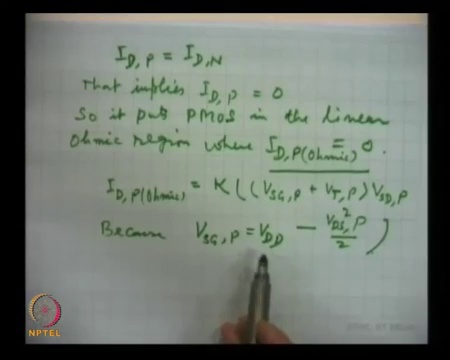 I_D,P = I_D,N
That implies I_D,P = 0
So it puts PMOS in the linear
Ohmic region where I_D,P(Ohmic) = 0.
I_D,P(Ohmic) = K((V_SG,P + V_T,P) V_SD,P
Because V_SG,P = V_DD - V_DS,P^2/2)
NPTEL